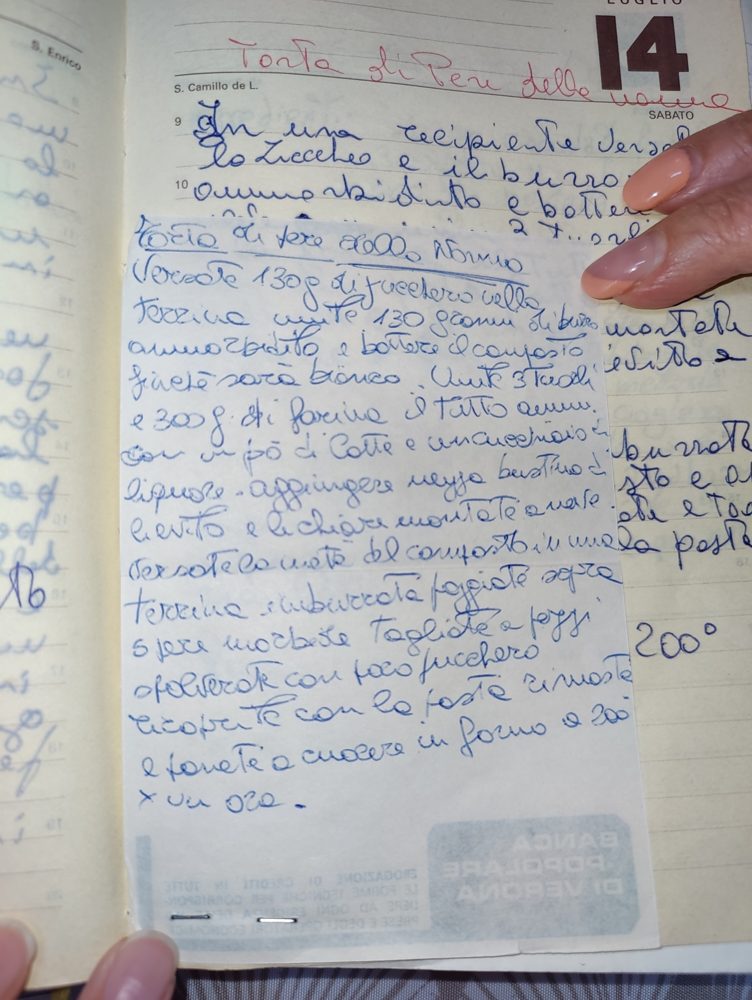 LUGLIO
14
S. Enrico
Torta di Pere della nonna
S. Camillo de L.
SABATO
9
In una recipiente versate
lo zucchero e il burro
10
ammorbidito e battere
Torta di pere della Nonna
Versate 130g di zucchero nella
terrina unite 130 grammi di burro
ammorbidito e battere il composto
finchè sarà bianco. Unite 3 tuorli
e 300 g. di farina il tutto amm.
con un pò di latte e un cucchiaio di
liquore. aggiungere mezza bustina di
lievito e le chiare montate a neve.
Versate la metà del composto in una
terrina imburrata poggiate sopra
5 pere morbide tagliate a pezzi
spolverate con poco zucchero
ricoprite con la pasta rimasta
e ponete a cuocere in forno a 200°
x un ora.
montate
burrata
la pasta
200°
BANCA
POPOLARE
DI VERONA
EROGAZIONE DI CREDITI IN TUTTE
LE FORME TECNICHE PER CORRISPON-
DERE AD OGNI